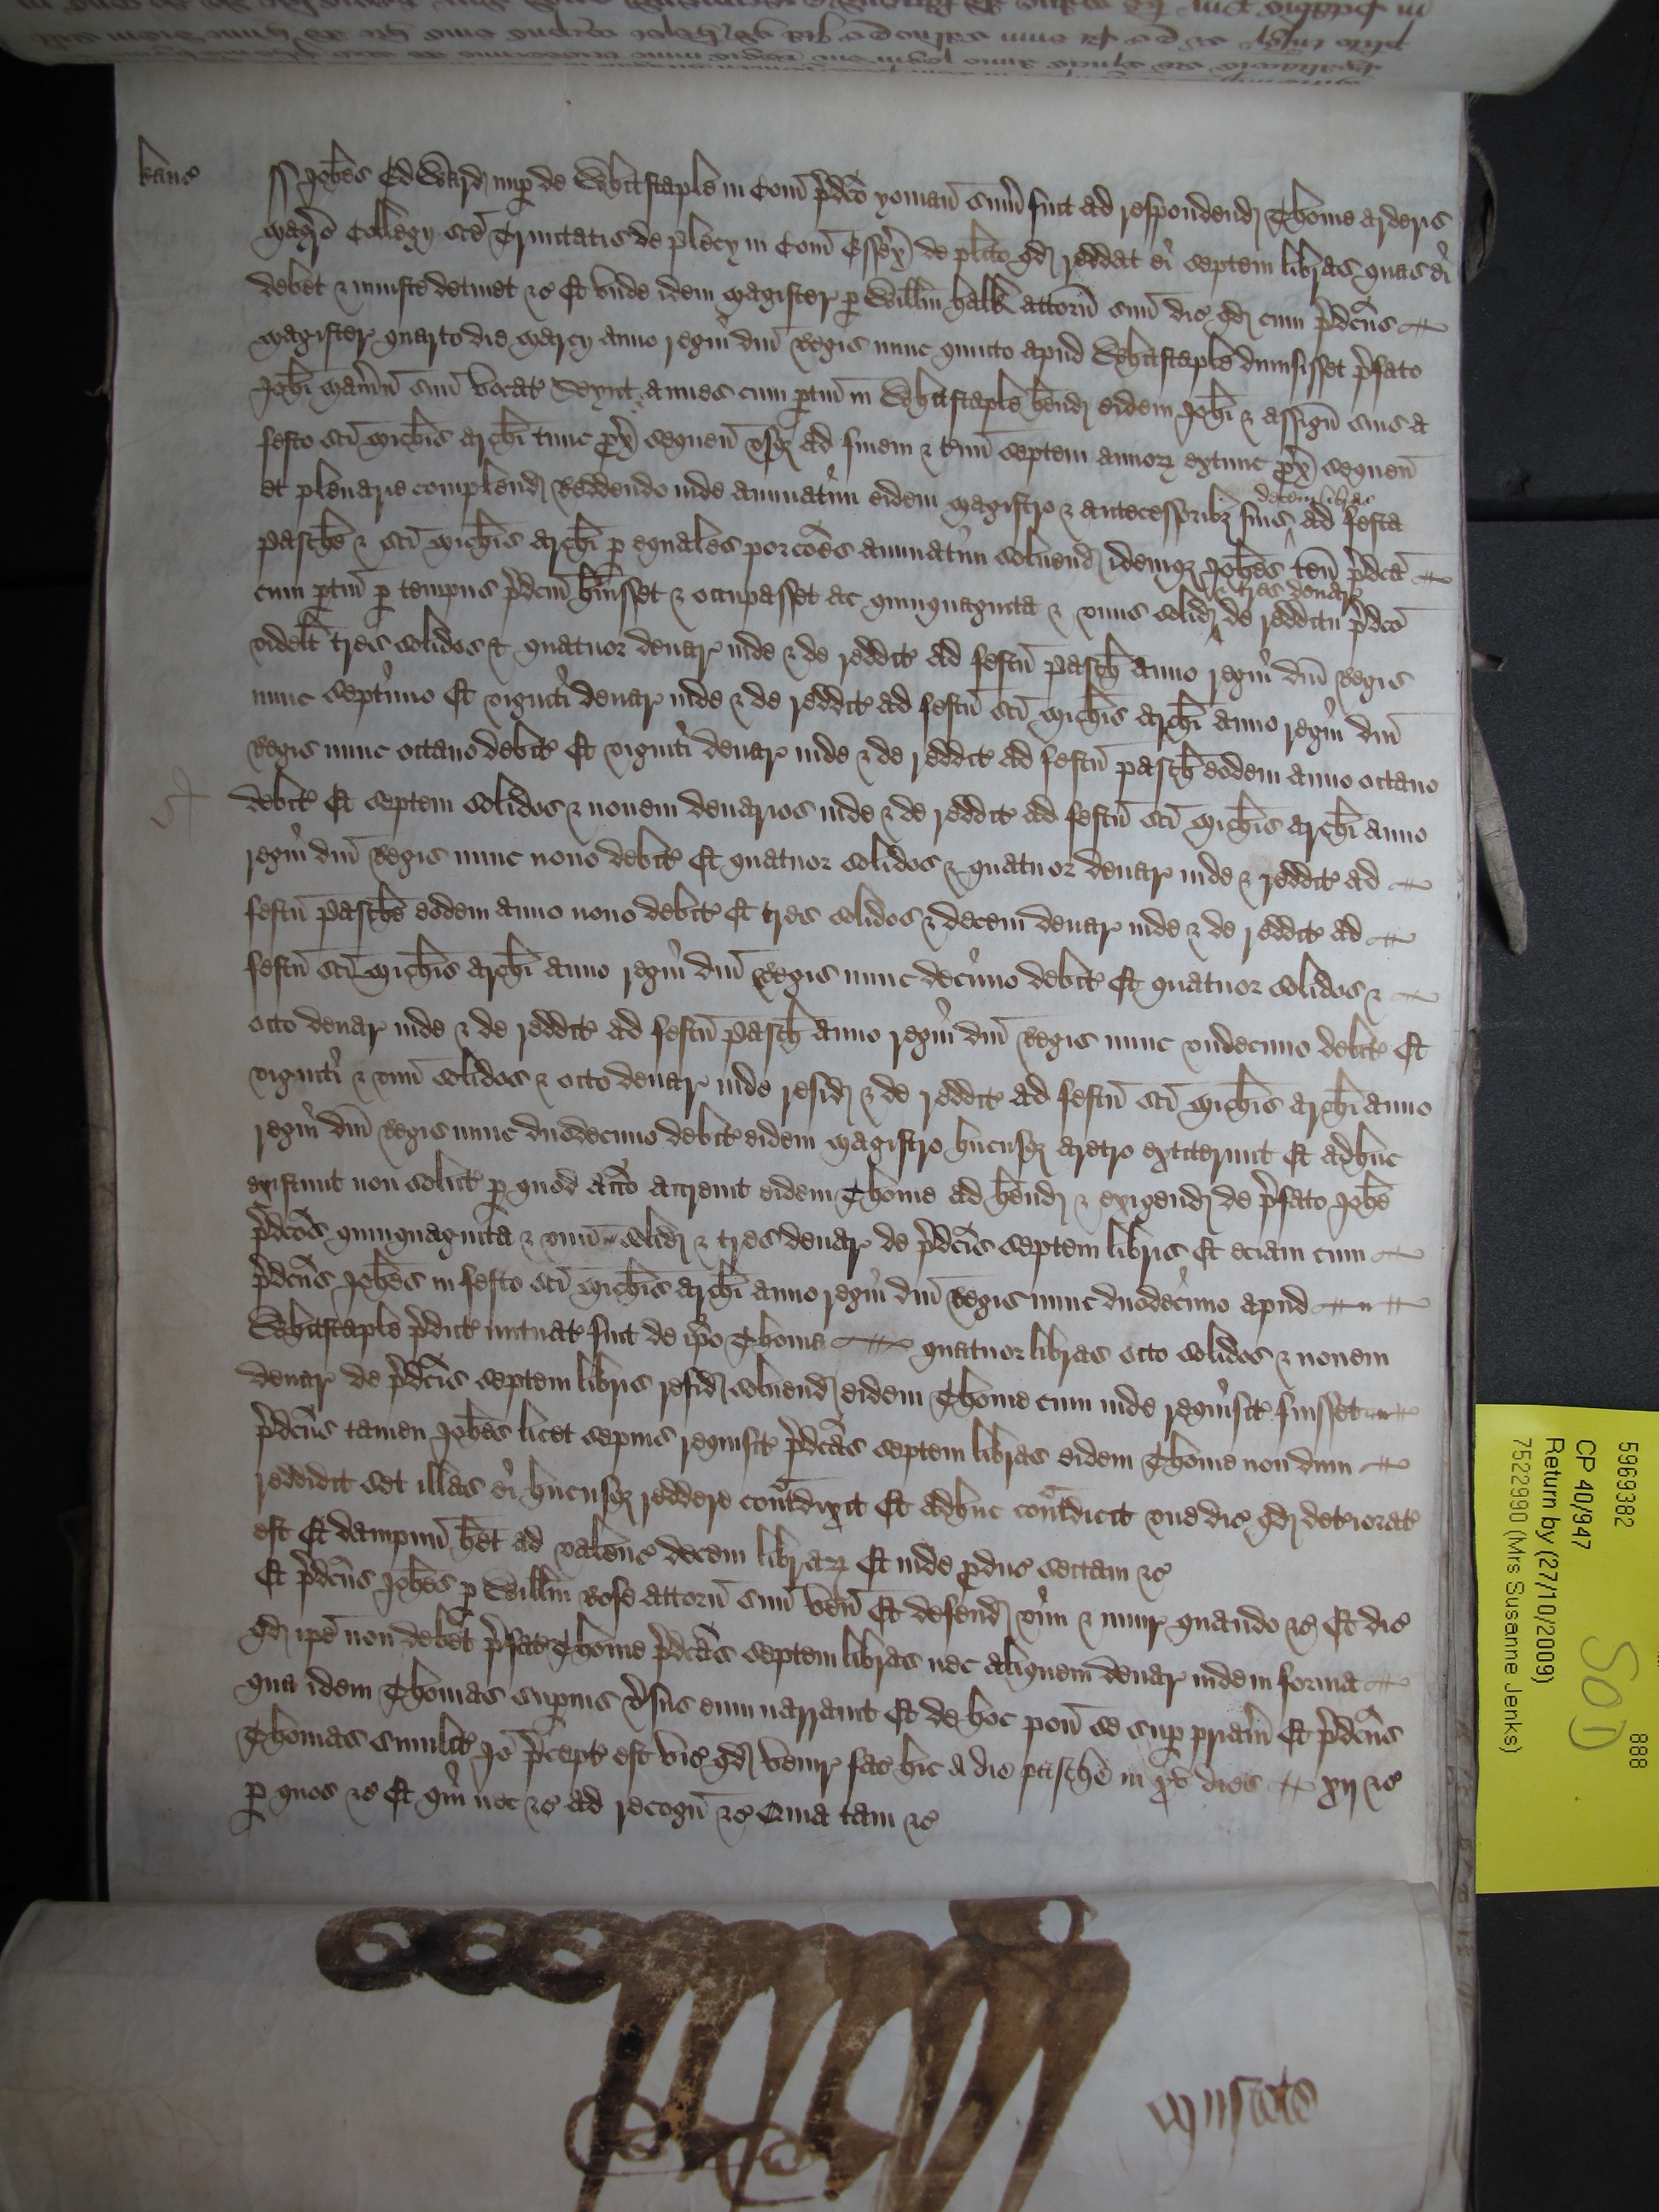 kanc
Joħes Edward nup de Whitstaple in Com p̄dco yoman sum̄ fuit ad respondend Thome arderis
Mag̃ro Collegij sc̄e Trinitatis de plecy in Com Essex de pl̄ito qd reddat ei septem libras quas ei
debet & iniuste detinet &c Et unde idem Magister p Willm halk attorn̄ suū dic qd cum p̄dcūs
Magister quarto die Marcij anno regni dn̄i Regis nunc quinto apud Whitstaple dimisisset p̄fato
Joħi Man̄iū suū vocat cum ptin̄ in Whitstaple hend eidem Joħi & assign̄ suis a
festo sc̄i Mich̄is arch̄i tunc px̄ sequen̄ usq ad finem & t̄m̄ septem annoꝝ extunc px̄ sequen̄
decem libras
et plenarie complend Reddendo inde annuatim eidem Magistro & antecessoribꝫ suis ad festa
Pasche & sc̄i Mich̄is arch̄i p equales porcōes annuatim soluend idemq Joħes ten̄ p̄dca
tres denar
cum ptin̄ p tempus p̄dcm̄ h̄uisset & occupasset ac quinquaginta & unus solid de redditu p̄dco
videlt tres solidos & quatuor denar inde & de reddit ad festū Pasch anno regni dn̄i Regis
nunc septimo Et viginti denar inde & de reddit ad festū sc̄i Mich̄is arch̄i anno regni dn̄i
Regis nunc octauo debit Et viginti denar inde & de reddit ad festū pasch eodem anno octauo
debit Et septem solidos & nouem denarios inde & de reddit ad festū sc̄i Mich̄is arch̄i anno
regni dn̄i Regis nunc nono debit Et quatuor solidos & quatuor denar inde & reddit ad
festū Pasche eodem anno nono debit Et tres solidos & decem denar inde & de reddit ad
festū sc̄i Mich̄is arch̄i anno regni dn̄i Regis nunc decimo debit Et quatuor solidos &
octo denar inde & de reddit ad festū Pasch anno regni dn̄i Regis nunc undecimo debit Et
viginti & unū solidos & octo denar inde resid & de reddit ad festū sc̄i Mich̄is arch̄i anno
regni dn̄i Regis nunc duodecimo debit eidem Magistro hucusq aretro extiterunt Et adhuc
existunt non solut p quod acco accreuit eidem Thome ad hend & exigend de p̄fato Joħe
p̄dcōs quinquaginta & unū solid & tres denar de p̄dcis septem libris Et eciam cum
p̄dcūs Joħes in festo sc̄i Mich̄is arch̄i anno regni dn̄i Regis nunc duodecimo apud
Whitstaple p̄dict mutuat fuit de ip̄o Thoma quatuor libras octo solidos & nouem
denar de p̄dcis septem libris resid soluend eidem Thome cum inde requisit fuisset
p̄dcūs tamen Joħes licet sepius requisit p̄dcās septem libras eidem Thome non dum
reddidit set illas ei hucusq reddere cont̄dixit Et adhuc cont̄dicit unde dic qd deteriorat
est Et dampnū het ad valenc decem libraꝝ Et inde pduc sectam &c
Et p̄dcūs Joħes p Willm Rose attorn̄ suū ven̄ Et defend vim & iniur quando &c Et dic
qd ip̄e non debet p̄fat Thome p̄dcās septem libras nec aliquem denar inde in forma
qua idem Thomas supius v̄sus eum narrauit Et de hoc pon̄ se sup pr̄iam̄ Et p̄dcūs
Thomas similit Jo p̄cept est vic qd venir fac hic a die pasche in xv dies xij &c
p quos &c Et qui nec &c ad recogn̄ &c Quia tam &c
5969382
CP 40/947
Return by (27/10/2009)
7522990 (Mrs Susanne Jenks)
888